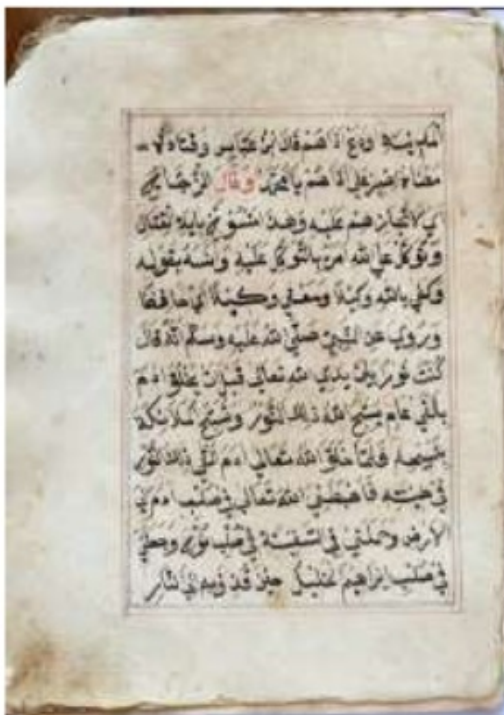 ودع أذاهم قال ابن عباس وقتاده
معناه اصبر على أذاهم يا محمد وقال الزجاج
أي لا تجازهم عليه وهذا منسوخ بآية القتال
وتوكل على الله من بالتوكل عليه بقوله
وكفى بالله وكيلا وكيلا أي حافظا
وروي عن النبي صلى الله عليه وسلم انه قال
كنت نورا بين يدي الله تعالى قبل ان يخلق ادم
بالفي عام يسبح الله ذلك النور وتسبح الملائكة
بتسبيحه فلما خلق الله تعالى ادم ذلك النور
في فاهبطني الله تعالى في صلب ادم
الارض وحملني في السفينة في صلب نوح وجعلني
في صلب ابراهيم الخليل حين قذف به في النار